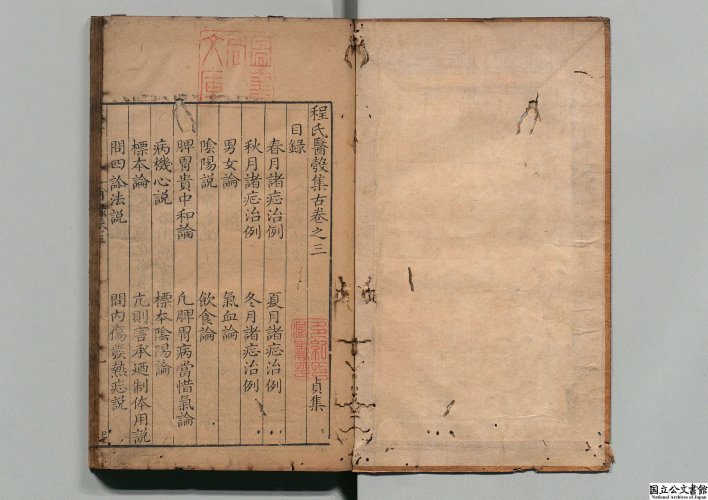 程氏醫彀集古卷之三 貞集
目録
春月諸症治例 夏月諸症治例
秋月諸症治例 冬月諸症治例
男女論 氣血論
陰陽説 飲食論
脾胃貴中和論 凡脾胃病當惜氣論
病機心説 標本陰陽論
標本論 亢則害承廼制体用説
問四診法説 問內傷發熱症説
圖書
局
文庫
国立公文書館
National Archives of Japan